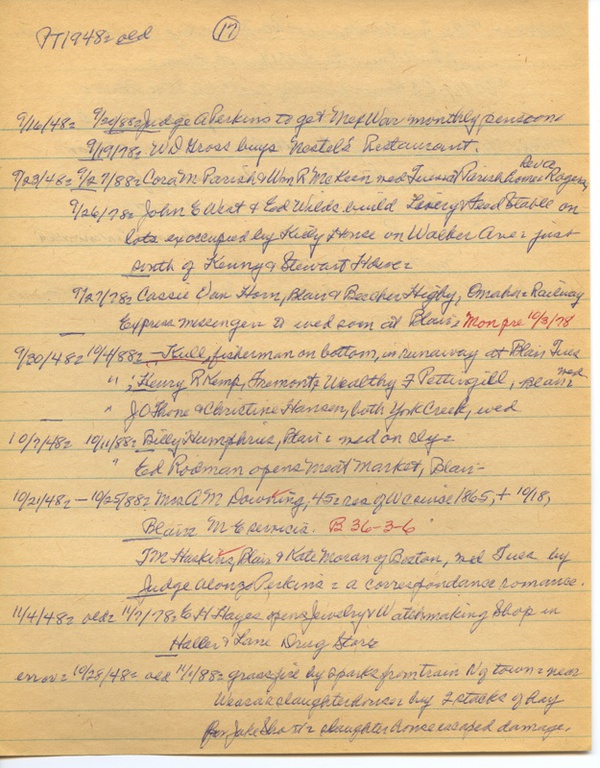 PT1948= old 17
9/16/48= 9/20/88= Judge A Perkins to get Mex War monthly pension
9/19/78= W D Gross buys Nestel's Restaurant.
9/23/48= 9/27/88= Cora M. Parish & Wm R McKeen wed Tues at Parish home= Rev A Rogers
9/26/78= John E West & Ed Wilds build Livery & Feed Stable on
lots exoccupied by Kelly House on Walker Ave= just
south of Kenny & Stewart House=
9/27/78= Cassie Van Horn, Blair & Beecher Higby, Omaha= Railway
Express messenger to wed soon at Blair= Mon pre 10/3/78
9/30/48= 10/4/88= – Kull, fisherman on bottom, in runaway at Blair Tues
" ; Henry R Kemp, Fremont & Wealthy F Pettingill, Blair= wed
" J O Thone & Christine Hansen, both York Creek, wed
10/7/48= 10/11/88= Billy Humphries, Blair= wed on sly=
" Ed Rodman opens Meat Market, Blair–
10/21/48= – 10/25/88= Mrs A M Downing, 45= res of WC since 1865, + 10/18,
Blair M E service. B 36-3-6
T M Haskins, Blair & Kate Moran of Boston, wed Tues by
Judge Alonzo Perkins= a correspondance romance.
11/4/48= old= 11/7/78= E H Hayes opens Jewelry & Watchmaking Shop in
Haller & Lane Drug Store
error= 10/28/48= old 11/1/88= grassfire by sparks from train N of town= near
slaughterhouse= bu 2 stacks of hay
for Jake slaughterhouse escaped damage.